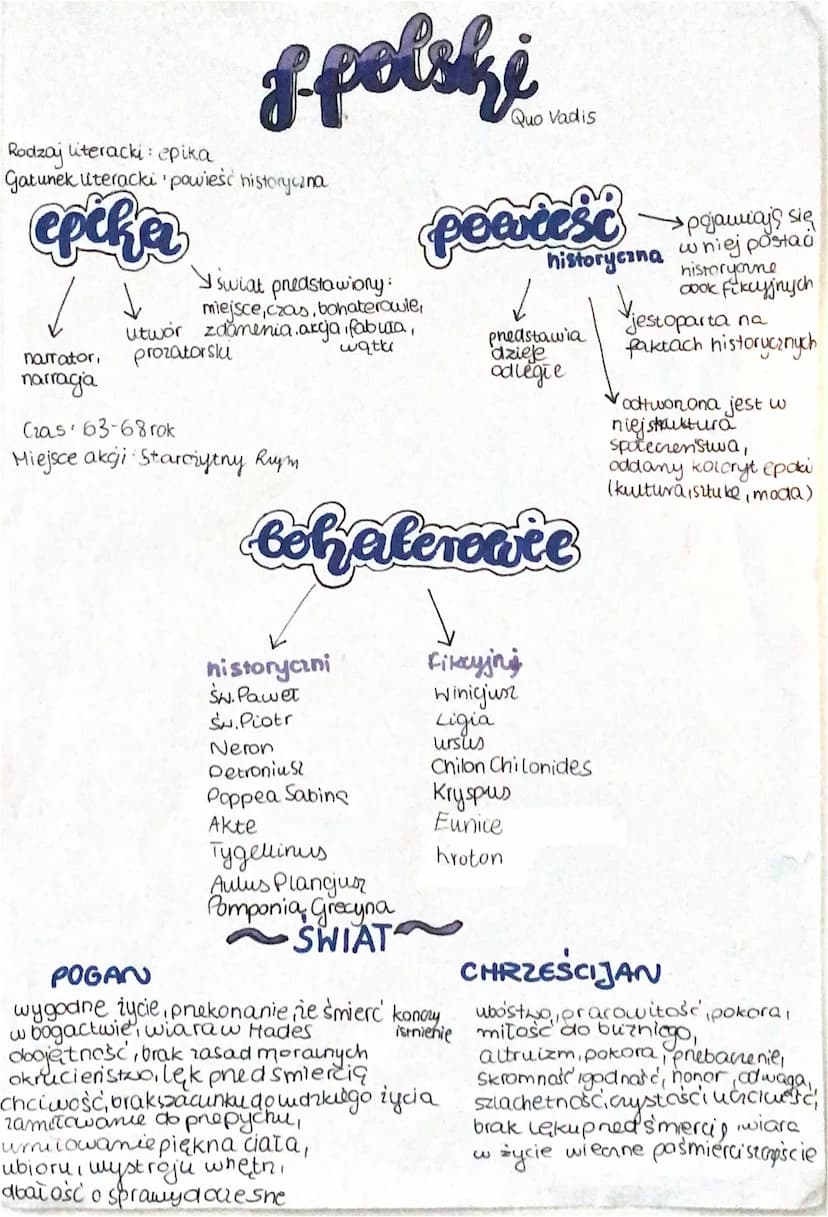 j. polski
Quo Vadis
Rodzaj literacki: epika
Gatunek literacki: powieść historyczna
epika
świat przedstawiony:
miejsce, czas, bohaterowie,
zdarzenia, akcja, fabuła,
wątki
utwór
prozatorski
narrator,
narracja
powieść
historyczna
pojawiają się
w niej postaci
historyczne
obok fikcyjnych
przedstawia
dzieje
odległe
jest oparta na
faktach historycznych
odtworzona jest w
niej struktura
społeczeństwa,
oddany koloryt epoki
(kultura, sztukę, moda)
Czas: 63-68 rok
Miejsce akcji: Starożytny Rzym
bohaterowie
historyczni
św. Paweł
św. Piotr
Neron
Petroniusz
Poppea Sabina
Akte
Tygellinus
Aulus Plancjusz
Pomponia Grecyna
fikcyjni
Winicjusz
Ligia
ursus
Chilon Chilonides
Kryspus
Eunice
kroton
ŚWIAT
POGAN
wygodne życie, przekonanie, że śmierć kończy
w bogactwie, wiara w Hades istnienie
obojętność, brak zasad moralnych
okrucieństwo, lęk przed śmiercią
chciwość, brak szacunku do ludzkiego życia
zamiłowanie do przepychu,
umiłowanie piękna ciała,
ubioru, wystroju wnętrz,
dbałość o sprawy doczesne
CHRZEŚCIJAN
ubóstwo, pracowitość, pokora,
miłość do bliźniego,
altruizm, pokora, przebaczenie,
skromność, godność, honor, odwaga,
szlachetność, czystość, uczciwość,
brak lęku przed śmiercią, wiara
w życie wieczne po śmierci szczęście